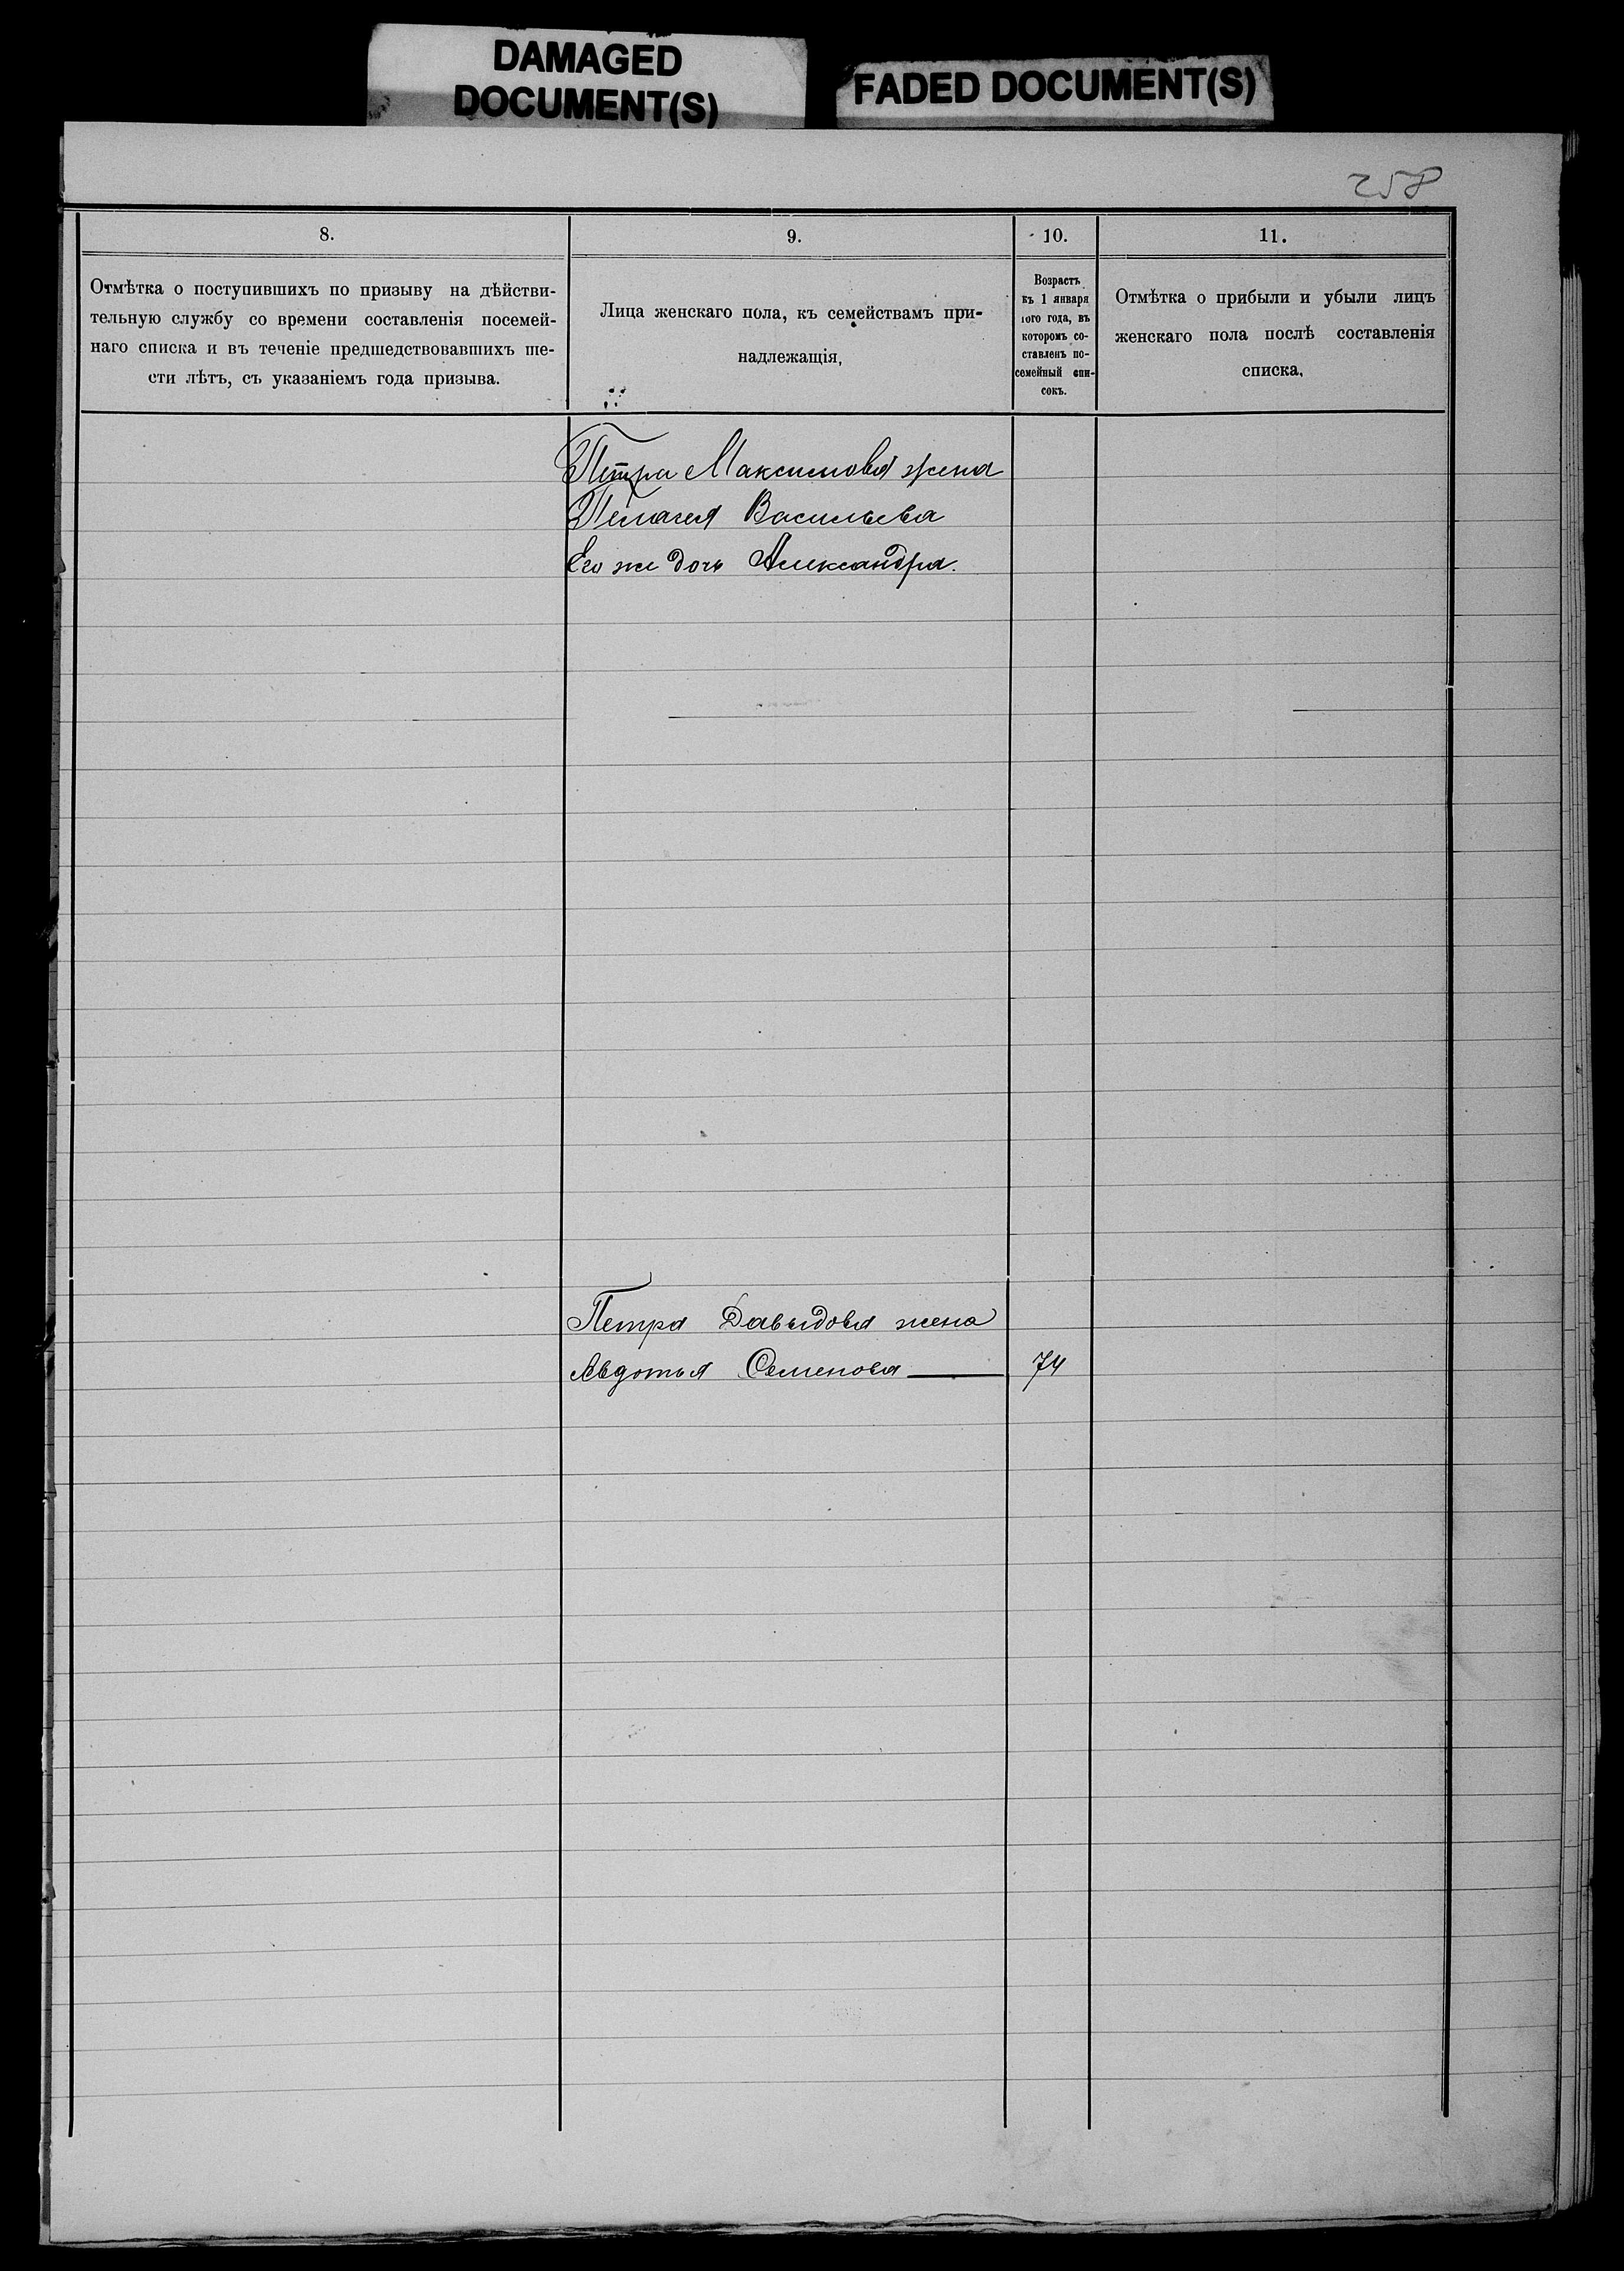 DAMAGED
DOCUMENT(S)
FADED DOCUMENT(S)
258
8.
9.
10.
11.
Отмѣтка о поступившихъ по призыву на дѣйстви-
тельную службу со времени составленія посемей-
наго списка и въ теченіе предшедствовавшихъ ше-
сти лѣтъ, съ указаніемъ года призыва.
Лица женскаго пола, къ семействамъ при-
надлежащія,
Возрастъ
къ 1 января
того года, въ
которомъ со-
ставленъ по-
семейный спи-
сокъ.
Отмѣтка о прибыли и убыли лицъ
женскаго пола послѣ составленія
списка.
Петра Максимова жена
Пелагея Васильева
Его же дочь Александра.
Петра Давыдова жена
Авдотья Семенова 74